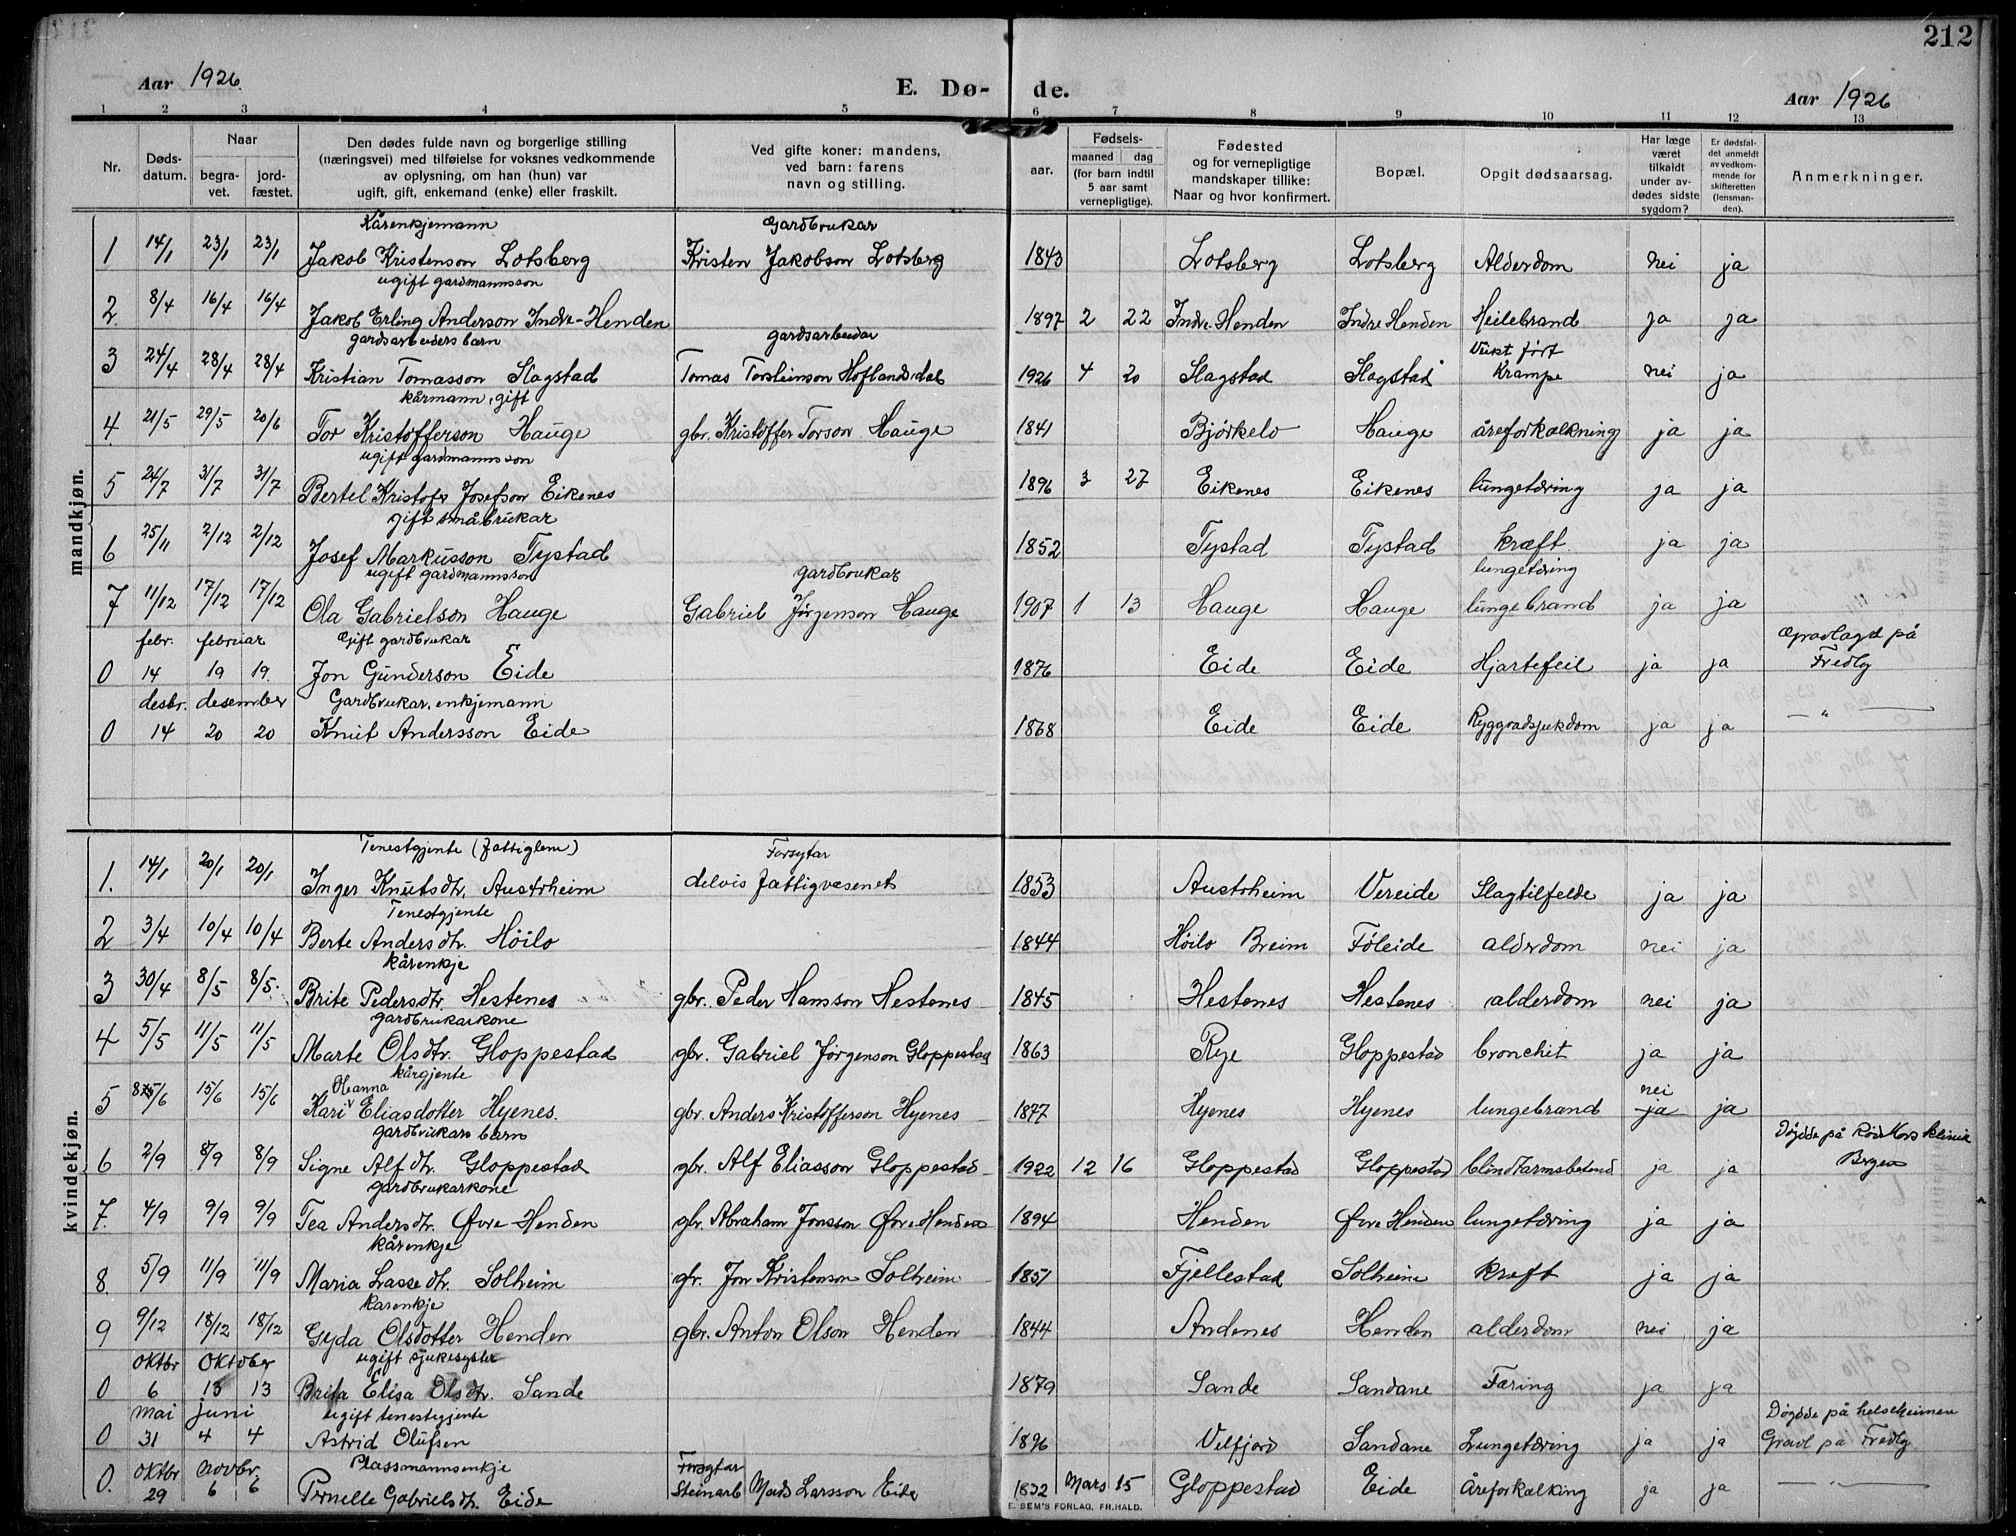 212
Aar 1926. E. Dø- de. Aar 1926
1 2 3 4 5 6 7 8 9 10 11 12 13
Nr. Døds-datum. Naar begra-vet. jord-fæstet. Den dødes fulde navn og borgerlige stilling (næringsvei) med tilføielse for voksnes vedkommende av oplysning, om han (hun) var ugift, gift, enkemand (enke) eller fraskilt. Ved gifte koner: mandens, ved barn: farens navn og stilling. Fødsels- aar. maaned dag (for barn indtil 5 aar samt vernepligtige). Fødested og for vernepligtige mandskaper tillike: Naar og hvor konfirmert. Bopæl. Opgit dødsaarsag. Har læge været tilkaldt under av-dødes sidste sygdom? Er dødsfal-det anmeldt av vedkom-mende for skifteretten (lensman-den). Anmerkninger.
mandkjøn.
Kårenkjemann Gardbrukar
1 14/1 23/1 23/1 Jakob Kristenson Lotsberg Kristen Jakobson Lotsberg 1843 Lotsberg Lotsberg Alderdom nei ja
ugift gardmannsson
2. 8/4 16/4 16/4 Jakob Erling Anderson Indre-Henden 1897 2 22 Indre-Henden Indre Henden Heilebrand ja ja
gardsarbeiders barn gardsarbeidar Veikt født
3 24/4 28/4 28/4 Kristian Tomasson Slagstad Tomas Torsteinson Hoflandsdal 1926 4 20 Slagstad Slagstad Krampe nei ja
kårmann, gift
4 21/5 29/5 20/6 Tor Kristofferson Hauge gbr. Kristoffer Torson Hauge 1841 Bjørkelo Hauge åreforkalkning ja ja
ugift gardmannsson
5 24/7 31/7 31/7 Bertel Kristofer Josefson Eikenes 1896 3 27 Eikenes Eikenes lungetæring ja ja
gift småbrukar
6 25/11 2/12 2/12 Josef Markusson Tystad 1852 Tystad Tystad kræft ja ja
ugift gardmannsson gardbrukar lungetæring
7 11/12 17/12 17/12 Ola Gabrielson Hauge Gabriel Jørgenson Hauge 1907 1 13 Hauge Hauge lungebrand ja ja
febr. februar Gift gardbrukar Gravlagd på
0 14 19 19. Jon Gunderson Eide 1876 Eide Eide Hjartefeil ja ja Fredly
desbr. desember Gardbrukar, enkjemann
0 14 20 20 Knut Andersson Eide 1868 Eide Eide Ryggradsjukdom ja ja — " —
kvindekjøn.
Tenestgjente (fattiglem) Forsytar
1. 14/1 20/1 20/1 Inger Knutsdtr. Austrheim delvis Fattigvæsenet 1853 Austrheim Vereide Slagtilfelde ja ja
Tenestgjente
2 3/4 10/4 10/4 Berte Andersdtr. Höilo 1844 Höilo Breim Föleide alderdom nei ja
kårenkje
3 30/4 8/5 8/5. Brite Pedersdtr. Hestenes gbr. Peder Hansson Hestenes 1845 Hestenes Hestenes alderdom nei ja
gardbrukarkone
4 5/5 11/5 11/5 Marte Olsdtr. Gloppestad gbr. Gabriel Jørgenson Gloppestad 1863 Rye Gloppestad bronchit ja ja
kårgjente
Oleanna nei
5 8/6 15/6 15/6 Kari Eliasdotter Hyenes. gbr. Anders Kristofferson Hyenes 1877 Hyenes Hyenes lungebrand ja ja
gardbrukars barn Döydde på Röde Kors klinik
6 2/9 8/9 8/9 Signe Alfdtr. Gloppestad gbr. Alf Eliasson Gloppestad 1922 12 16 Gloppestad Gloppestad blindtarmsbetend ja ja Bergen
gardbrukarkone
7. 4/9 9/9 9/9 Tea Andersdtr. Øvre Henden gbr. Abraham Jonsson Øvre Henden 1894 Henden Øvre Henden lungetæring ja ja
kårenkje
8. 5/9 11/9 11/9 Maria Lassedtr. Solheim gbr. Jon Kristenson Solheim 1851 Fjellestad Solheim kreft ja ja
karenkje
9 9/12 18/12 18/12 Gyda Olsdotter Henden gbr. Anton Olson Henden 1844 Andenes Henden alderdom nei ja
oktbr oktober ugift sjukesyster
0 6 13 13 Brita Elisa Olsdtr. Sande 1879 Sande Sandane Tæring ja ja
mai juni ugift tenestgjente Döydde på helseheimen
0 31 4 4 Astrid Olufsen 1896 Velfjord Sandane Lungetæring ja ja Gravl på Fredly
oktbr novbr. Plassmannsenkje Forsytar
0. 29 6 6 Pernelle Gabrielsdtr. Eide Steinarb Mads Larsson Eide 1832 Mars 15 Gloppestad Eide Åreforkalking ja ja — " —
E. SEM'S FORLAG, FR.HALD.